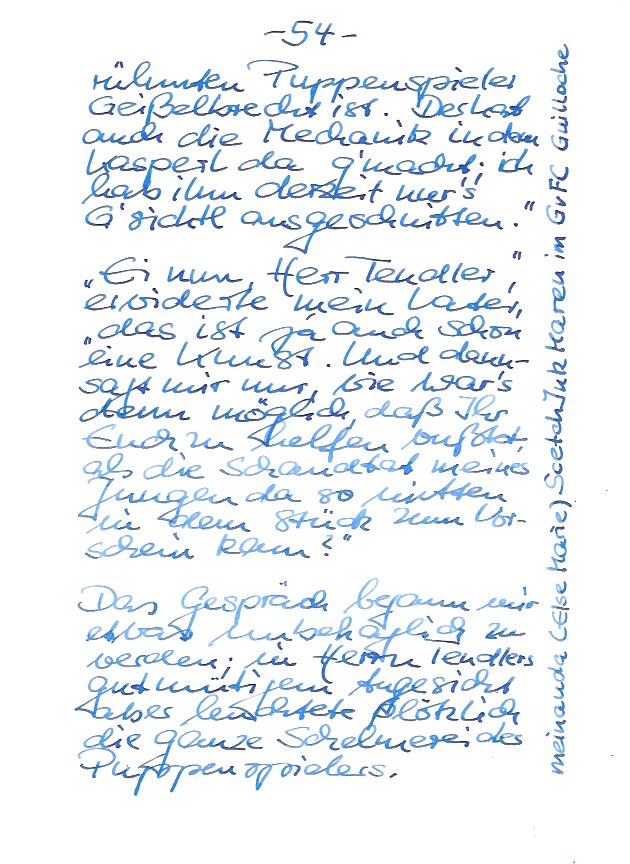 -54-
rühmten Puppenspieler
Geißelbrecht ist. Der hat
auch die Mechanik in dem
Kasperl da g'macht; ich
hab ihm derzeit nur's
G'sichtl ausgeschnitten."
„Ei nun, Herr Tendler",
erwiderte mein Vater,
„das ist ja auch schon
eine Kunst. Und dann-
sagt mir nur, wie war's
denn möglich, daß Ihr
Euch zu helfen wußtet,
als die Schandtat meines
Jungen da so mitten
in dem Stück zum Vor-
schein kam?"
Das Gespräch begann mir
etwas unbehaglich zu
werden; in Herrn Tendlers
gutmütigem Angesicht
aber leuchtete plötzlich
die ganze Schelmerei des
Puppenspielers.
meinanda (Else Marie) Scetch Ink Karen im GvFC Guilloche